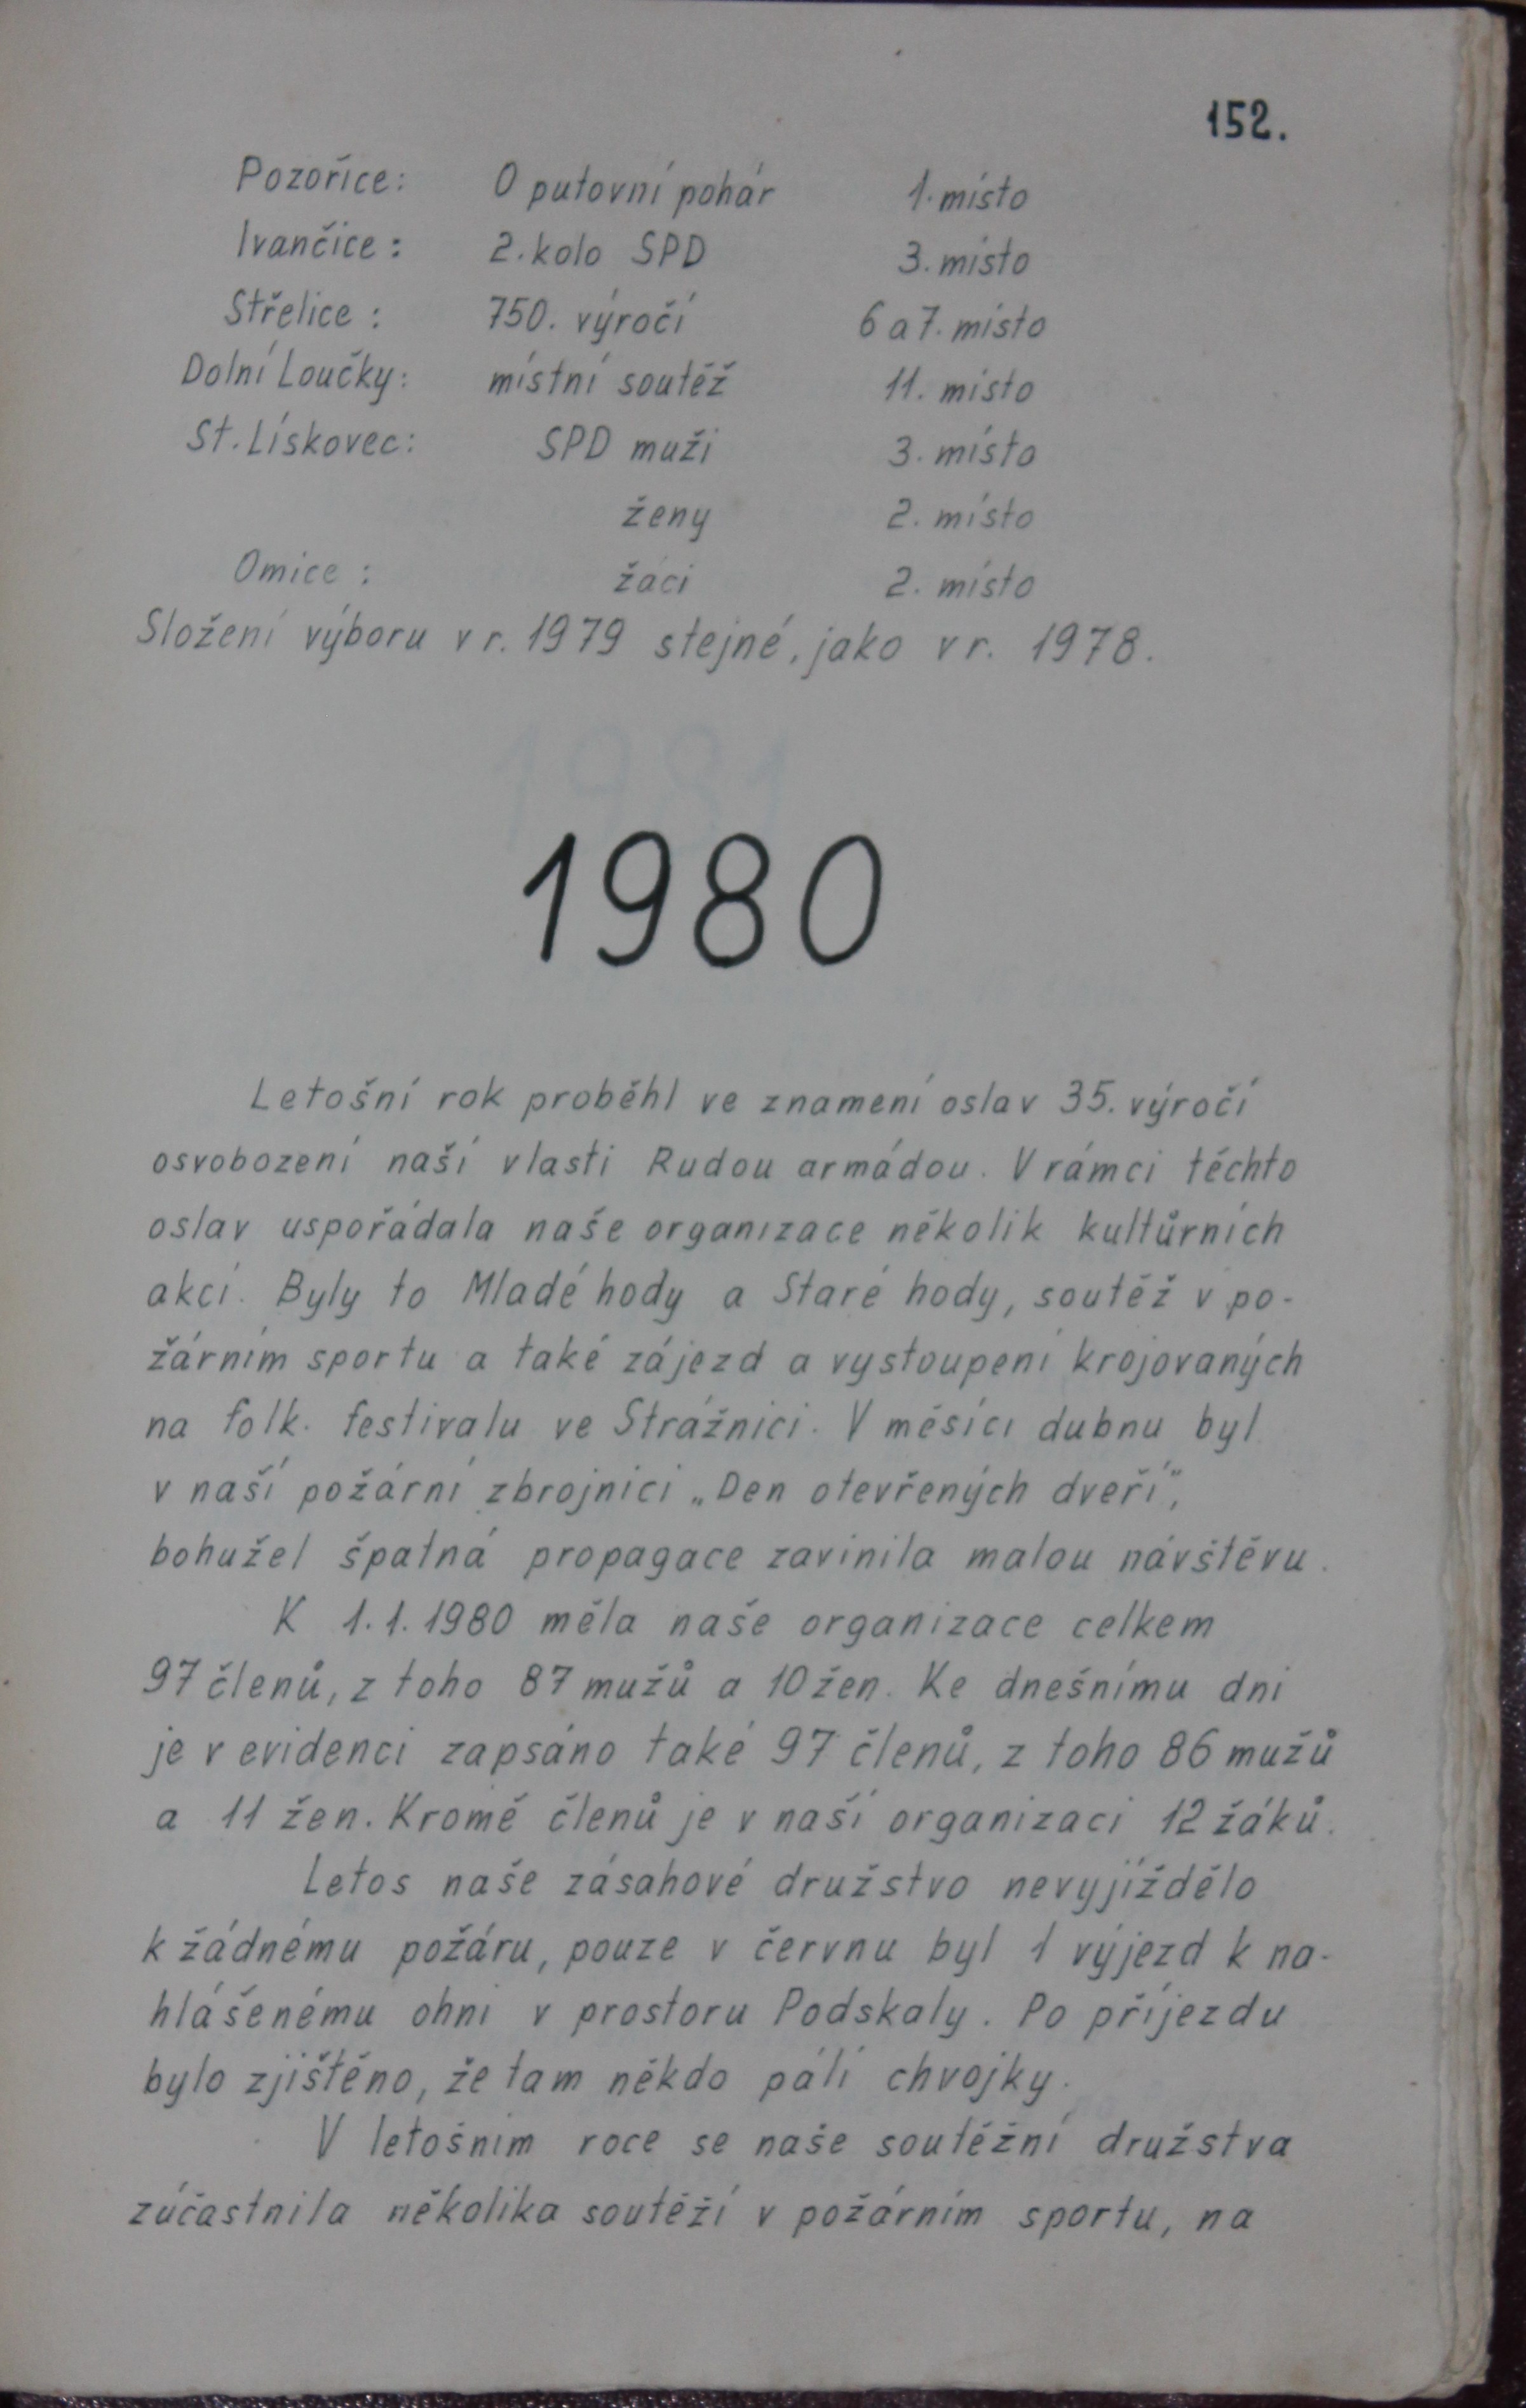 152.
Pozořice: O putovní pohár 1. místo
Ivančice: 2. kolo SPD 3. místo
Střelice: 750. výročí 6 a 7. místo
Dolní Loučky: místní soutěž 11. místo
St. Lískovec: SPD muži 3. místo
ženy 2. místo
Omice: žáci 2. místo
Složení výboru v r. 1979 stejné, jako v r. 1978.
1981
1980
Letošní rok proběhl ve znamení oslav 35. výročí
osvobození naší vlasti Rudou armádou. V rámci těchto
oslav uspořádala naše organizace několik kultůrních
akcí. Byly to Mladé hody a Staré hody, soutěž v po-
žárním sportu a také zájezd a vystoupení krojovaných
na folk. festivalu ve Strážnici. V měsíci dubnu byl
v naší požární zbrojnici „Den otevřených dveří",
bohužel špatná propagace zavinila malou návštěvu.
K 1.1.1980 měla naše organizace celkem
97 členů, z toho 87 mužů a 10 žen. Ke dnešnímu dni
je v evidenci zapsáno také 97 členů, z toho 86 mužů
a 11 žen. Kromě členů je v naší organizaci 12 žáků.
Letos naše zásahové družstvo nevyjíždělo
k žádnému požáru, pouze v červnu byl 1 výjezd k na-
hlášenému ohni v prostoru Podskaly. Po příjezdu
bylo zjištěno, že tam někdo pálí chvojky.
V letošním roce se naše soutěžní družstva
zúčastnila několika soutěží v požárním sportu, na